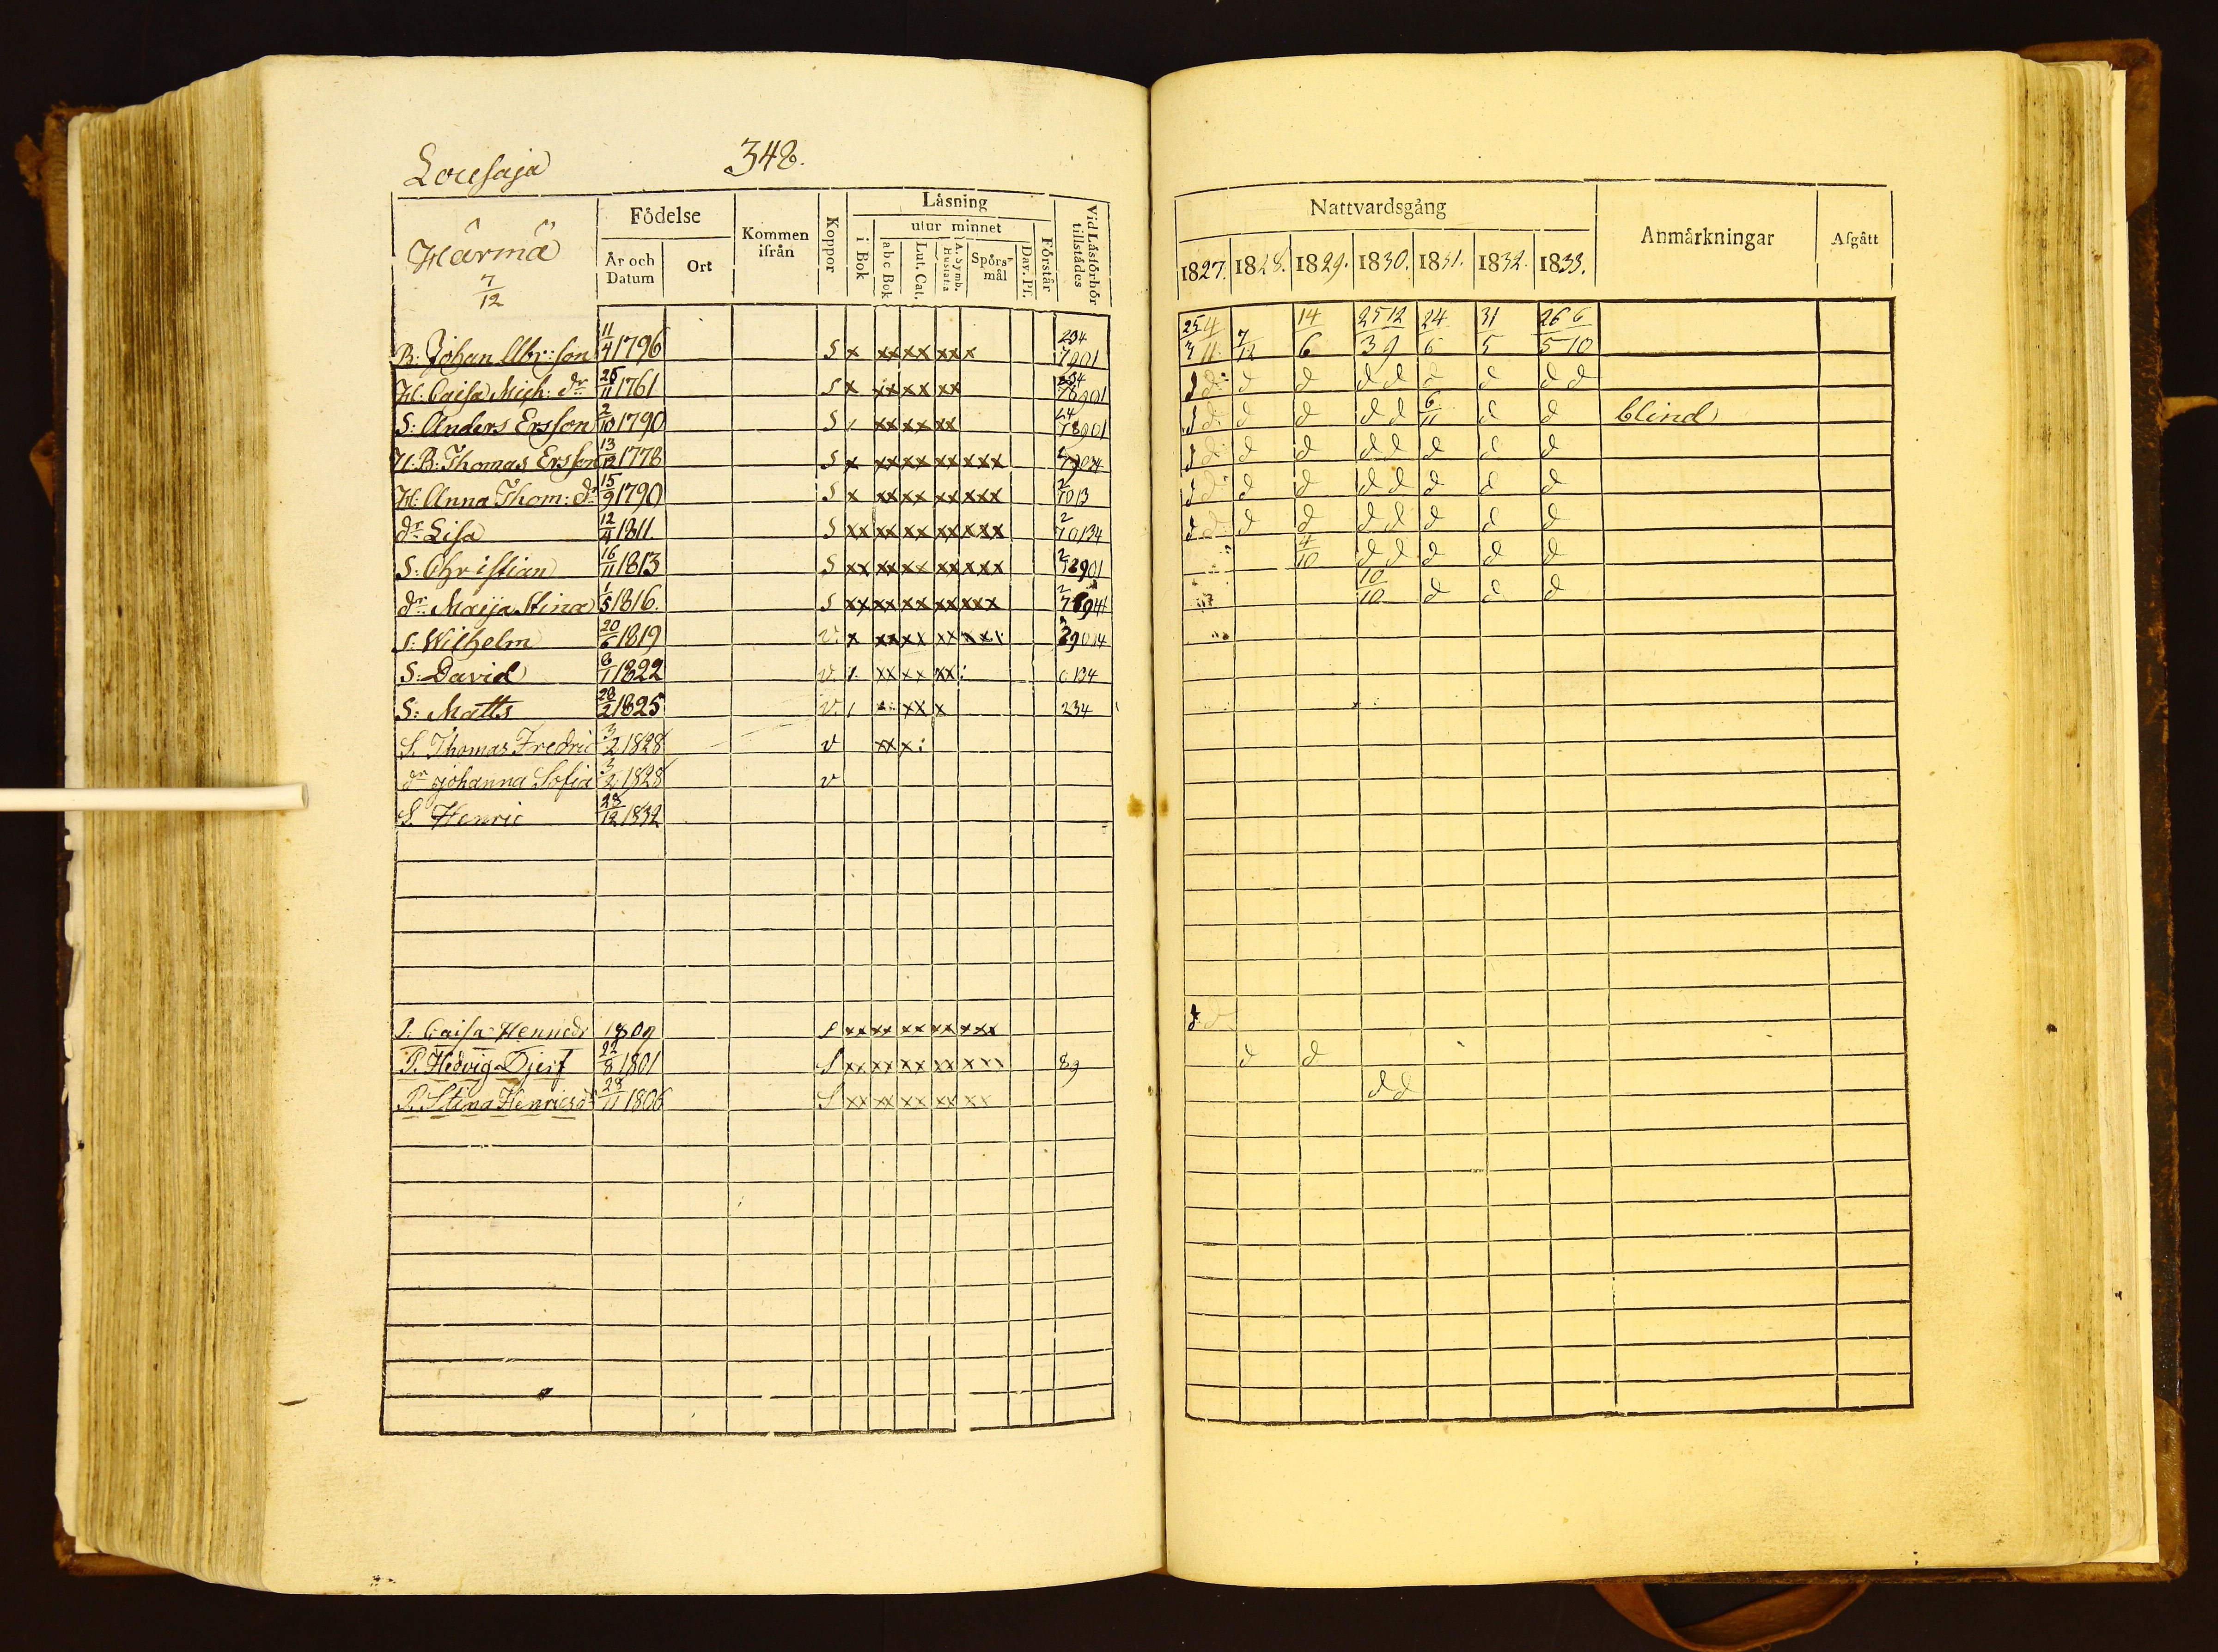 348.
Födelse
Kommen ifrån
Koppor
Läsning
i Bok
utur minnet
abc Bok
Lut. Cat.
A. Symb. Hustafla
Spörsmål
Dav. Ps.
Förstår
Vid Läsförhör tillstädes
År och Datum
Ort
Härmä
7/12
Nattvardsgång
Anmärkningar
Afgått
1827. 1828. 1829. 1830. 1831. 1832. 1833.
B: Johan Abr: son 11/4 1796 S x xx xx xx x 234 7901 25/3 4/11 7/12 14/6 25/3 12/9 24/6 31/5 26/5 6/10
H: Caisa Mich: dr 1761 S x xx xx xx d d d d d d d d d d
S: Anders Ersson 2/10 1790 S xx xx xx 78901 d d d d d d 6/11 d d blind
H: B: Thomas Ersson 13/12 1778 S x xx xx xx xxx d d d d d d d d d
H: Anna Thom: dr 15/9 1790 S x xx xx xx xxx 2 7013 d d d d d d d d d
dr Lisa 12/4 1811 S xx xx xx xx xxx 2 70134 d d d d d d d d d
S: Christian 16/11 1813 S xx xx xx xx xxx 2 78901 4/10 d d d d d
dr Maija Stina 1/5 1816. S xx xx xx xx xxx 10/10 d d d
S: Wilhelm 20/6 1819 v. x xx xx xx xx
S: David 8/1 1822 v. xx xx xx 0134
S: Matts 28/2 1825 v. xx x 234
S. Thomas Fredric 3/2 1828 v xx x
dr Johanna Sofia 3/2 1828 v
S. Henric 28/12 1832
P: Caisa Henricdr 1809 S xx xx xx xx xxx d d
P. Hedvig Djerf 22/8 1801 S xx xx xx xx xxx 89 d d
P. Stina Henricsdr 28/11 1806 S xx xx xx xx xx d d